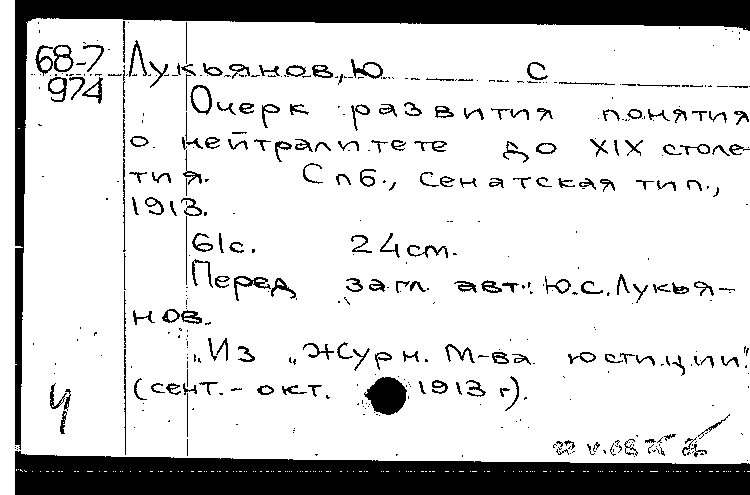 68-7 Лукьянов, Ю С
974
Очерк развития понятия
о нейтралитете до XIX столе-
тия. Спб., сенатская тип.,
1913.
61с. 24см.
Перед загл. авт.: Ю.С.Лукья-
нов.
„Из „Журн. М-ва юстиции"
(сент.- окт. 1913 г).
Ч